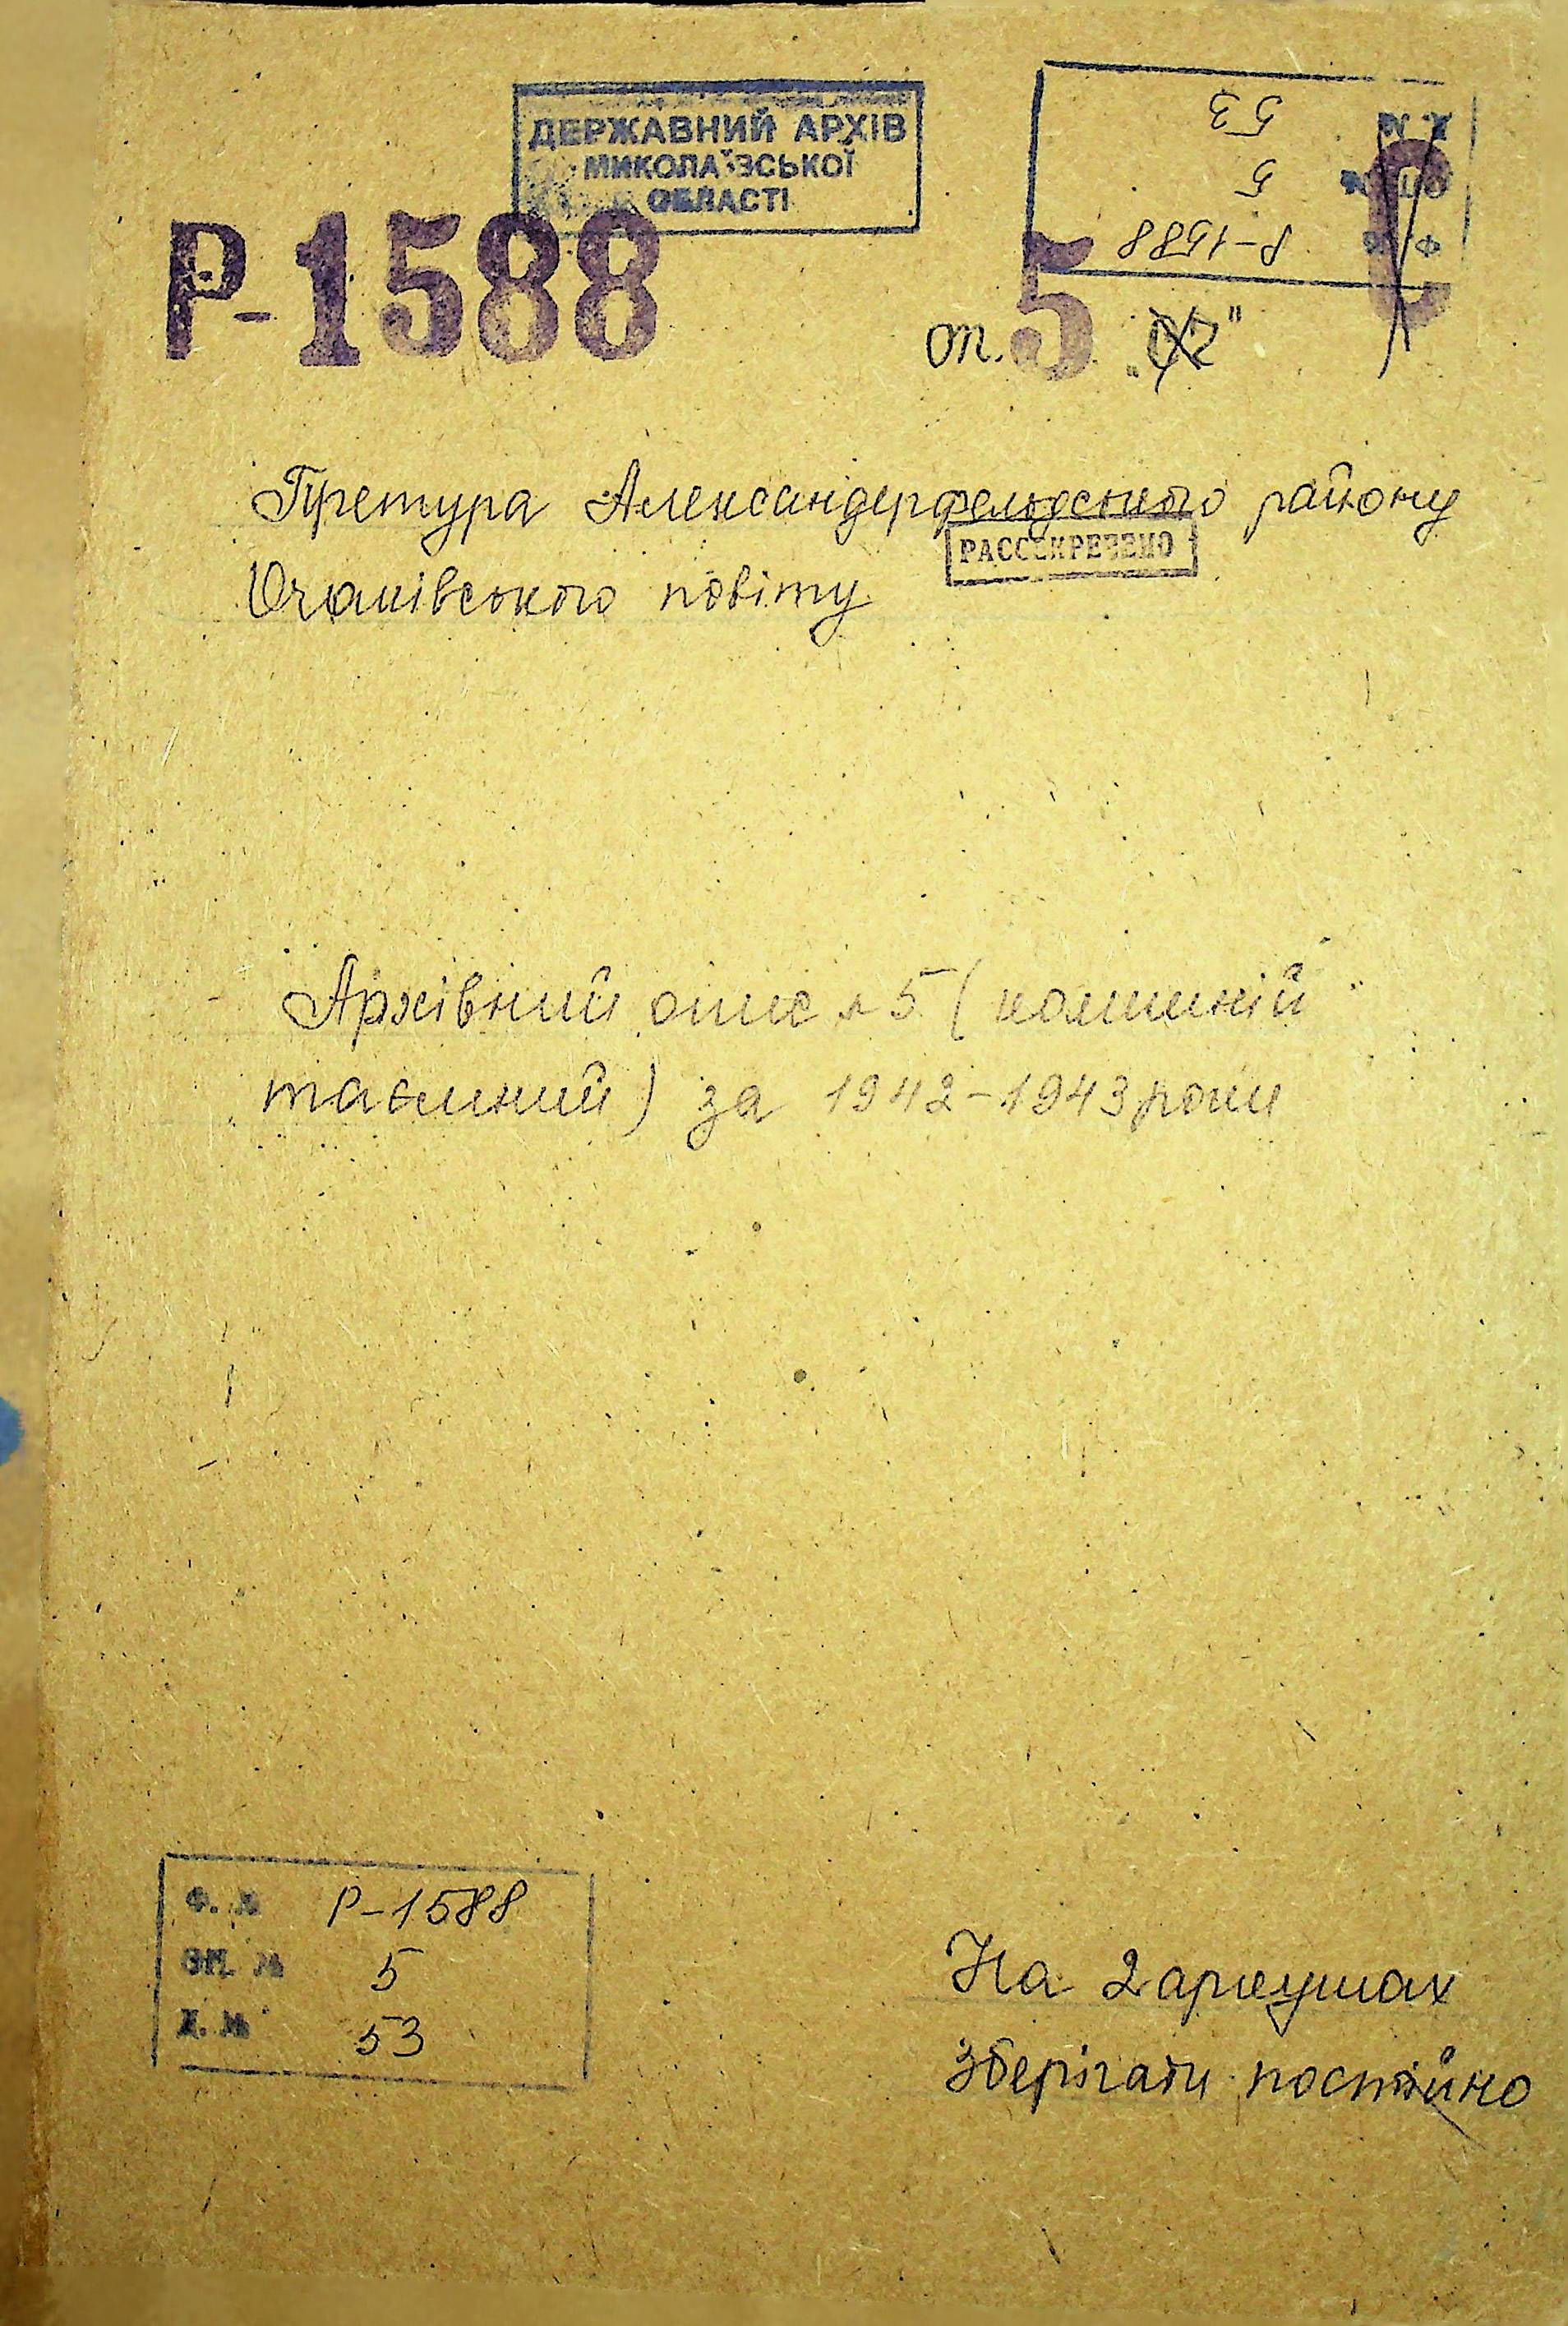 ДЕРЖАВНИЙ АРХІВ
МИКОЛАЇВСЬКОЇ
ОБЛАСТІ
Р-1588
53
5
Р-1588
С
оп. 5
Претура Александерфельдського району
РАССЕКРЕЧЕНО
Очаківського повіту
Архівний опис № 5 (колишній
таємний) за 1942-1943 роки
Ф. № Р-1588
ОП. № 5
Х. № 53
На 2 аркушах
Зберігати постійно